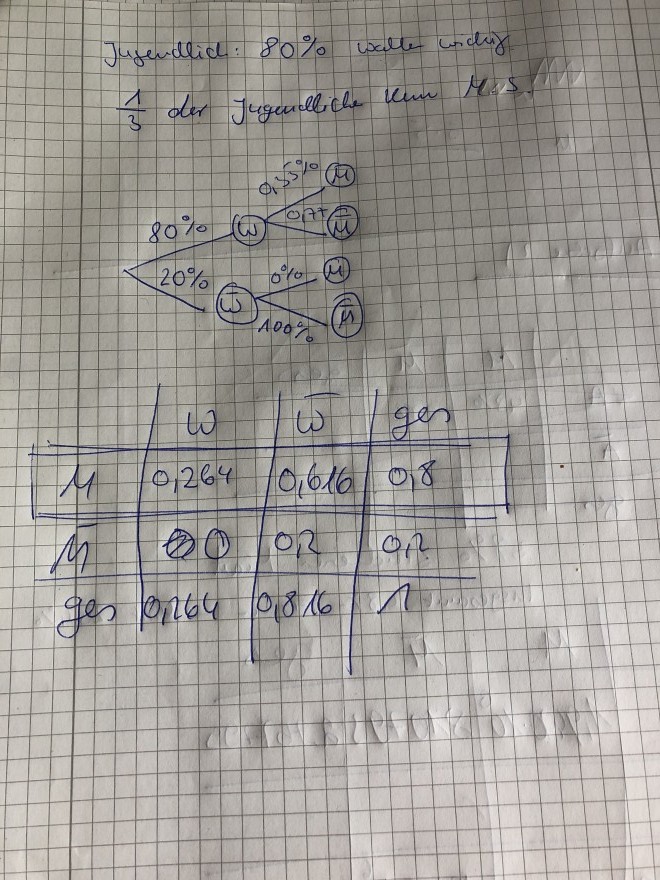 Jugendlich: 80% wichtig
1/3 der Jugendliche M.S.
80% W 0,33% M
0,77 M̅
20% W̅ 0% M
100% M̅
W W̅ ges
M 0,264 0,616 0,8
M̅ 0 0,2 0,2
ges 0,264 0,816 1